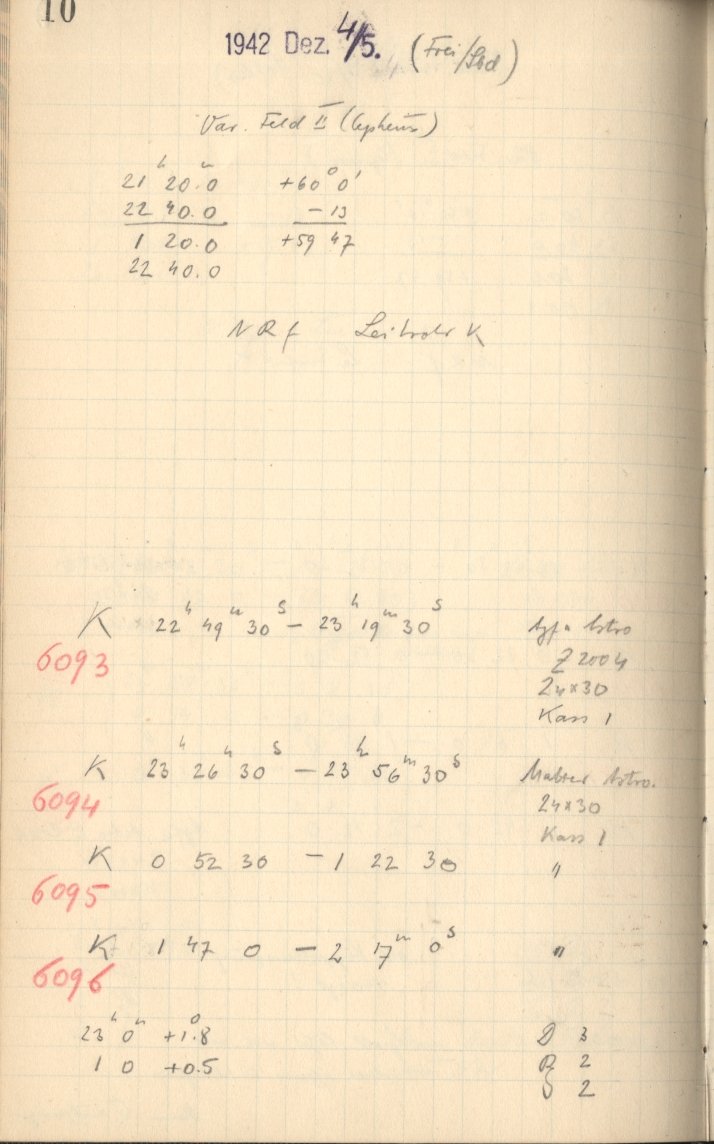 10
1942 Dez. 4/5. (Frei/Sbd)
Var. Feld II (Cepheus)
21ʰ 20.ᵐ0 +60° 0'
22 40.0 – 13
1 20.0 +59 47
22 40.0
N R f Leitrohr K
K 22ʰ 49ᵐ 30ˢ – 23ʰ 19ᵐ 30ˢ Agfa Astro
6093 Z 2004
24x30
Kass 1
K 23ʰ 26ʰ 30ˢ – 23ʰ 56ᵐ 30ˢ Astro.
6094 24x30
Kass 1
K 0 52 30 – 1 22 30 "
6095
K 1 47 0 – 2 17ᵐ 0ˢ "
6096
23ʰ 0ᵐ +1.°8 D 3
1 0 +0.5 R 2
S 2